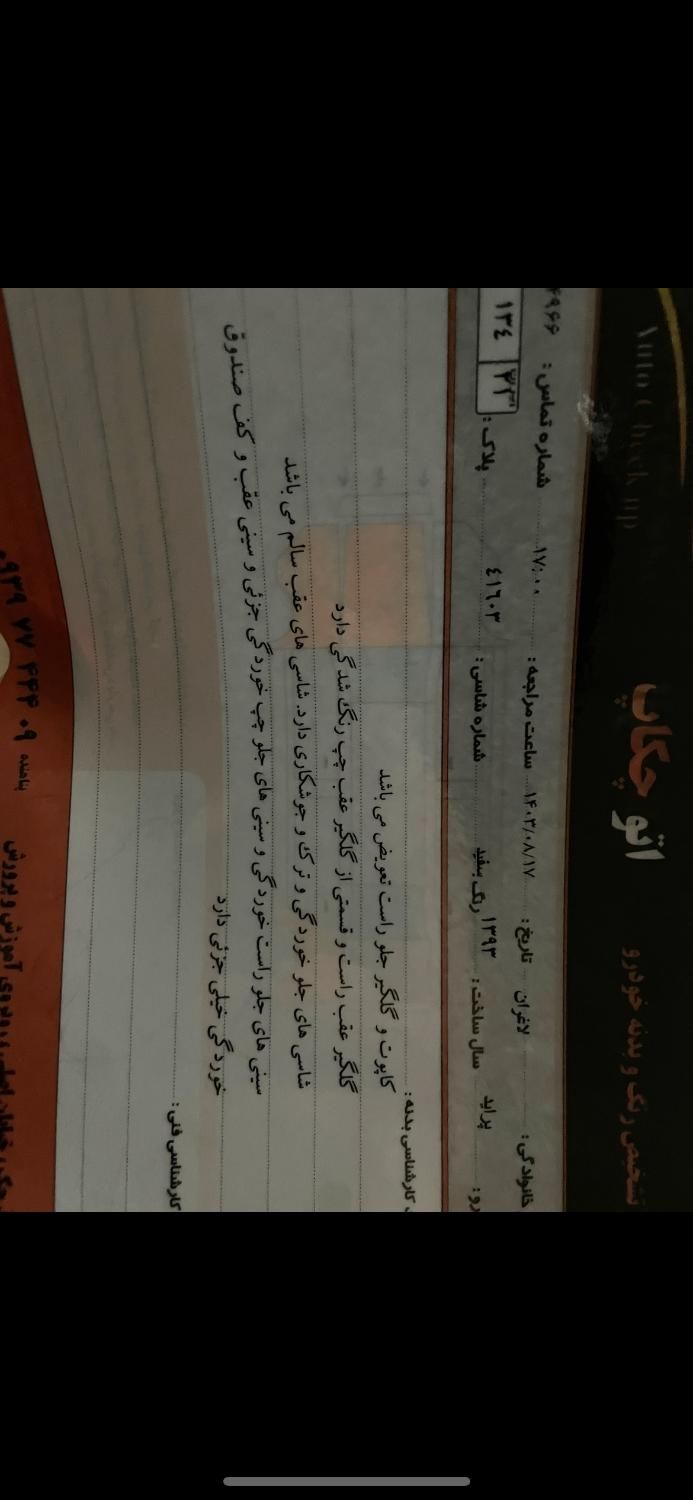 Auto Check Up
اتو چکاپ
تشخیص رنگ و بدنه خودرو
خانوادگی : لاغران تاریخ : ۱۴۰۳/۰۸/۱۷ ساعت مراجعه : ۱۷:۰۰ شماره تماس : ۴۹۶۶
رو : پراید سال ساخت : ۱۳۹۳ رنگ سفید شماره شاسی : ٤١٦٠٣ پلاک : ١٣٤
کارشناسی بدنه :
کاپوت و گلگیر جلو راست تعویض می باشد
گلگیر عقب راست و قسمتی از گلگیر عقب چپ رنگ شدگی دارد
شاسی های جلو خوردگی و ترک و جوشکاری دارد. شاسی های عقب سالم می باشد
سینی های جلو راست خوردگی و سینی های جلو چپ خوردگی جزئی و سینی عقب و کف صندوق
خوردگی خیلی جزئی دارد
کارشناسی فنی :
۰۹۳۹ ۷۷ ۴۴۴ ۰۹ پناهنده